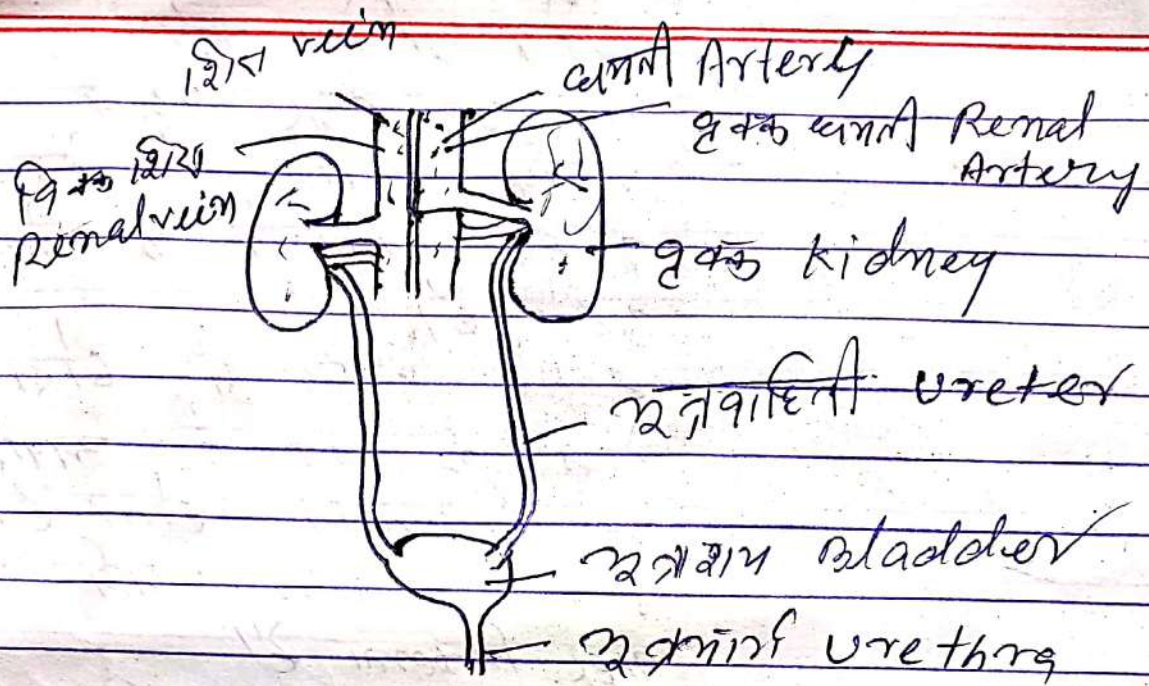 शिरा vein
धमनी Artery
वृक्क धमनी Renal
Artery
विक्क शिरा
Renal vein
वृक्क Kidney
मूत्रवाहिनी Ureter
मूत्राशय Bladder
मूत्रमार्ग Urethra